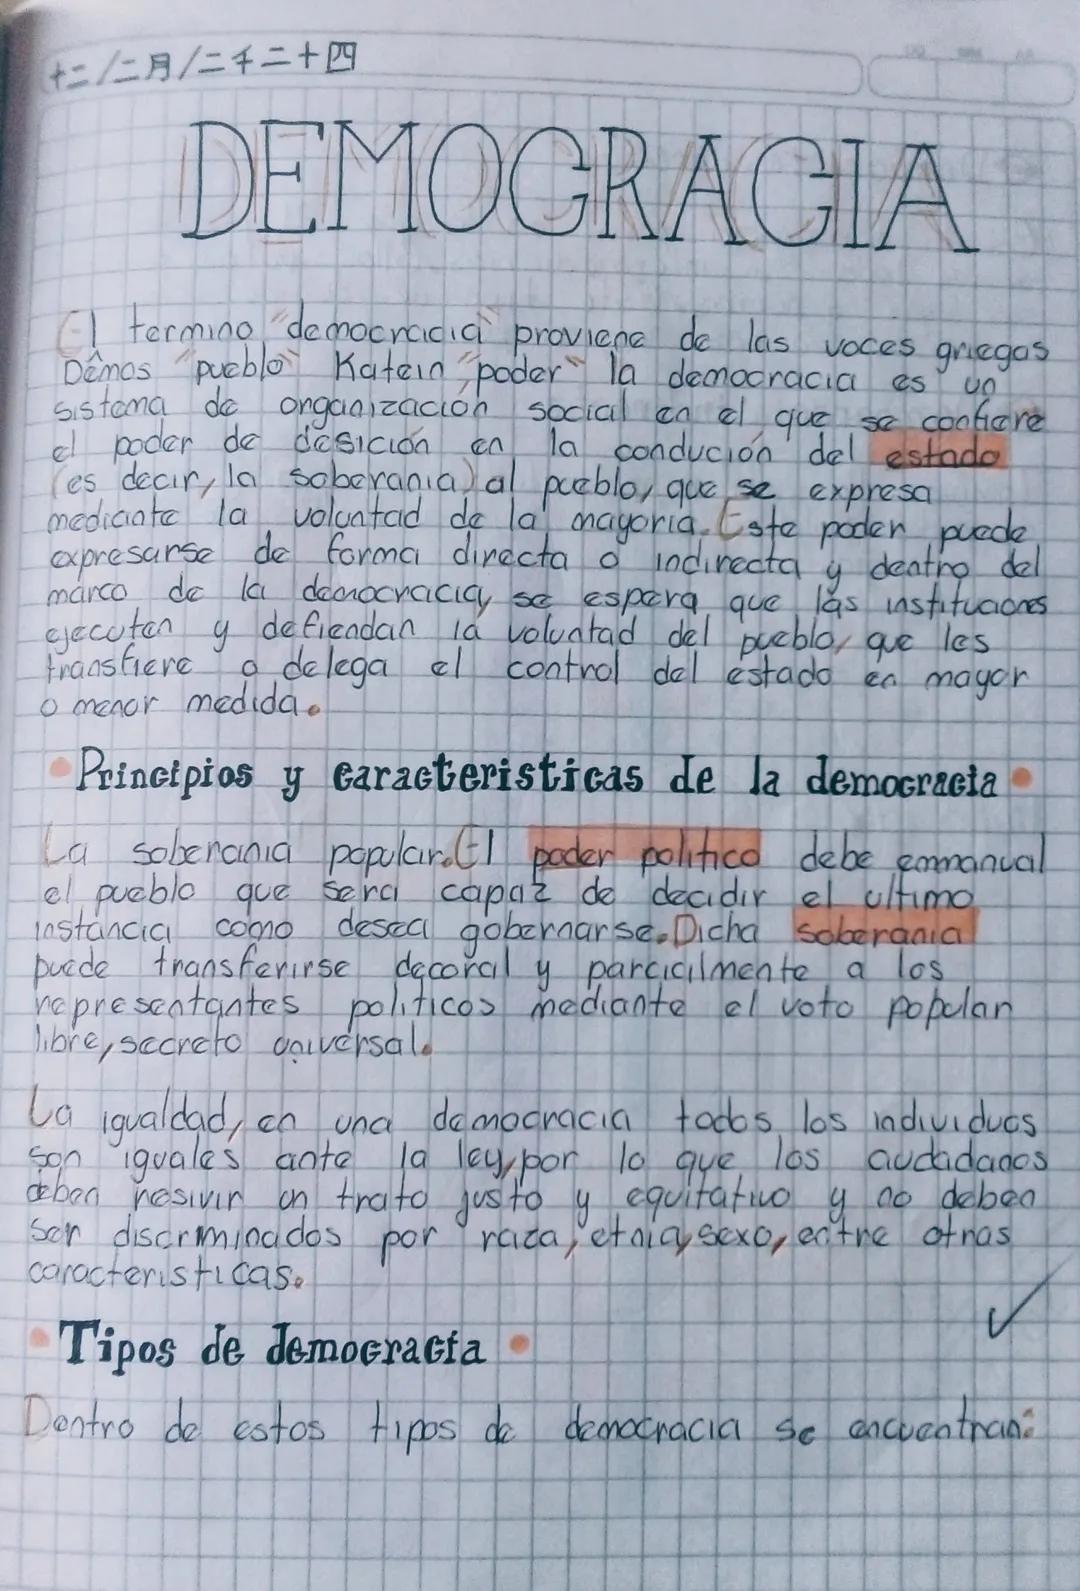 十二/二月/二千二十四
DEMOCRACIA
El termino "democracia" proviene de las voces griegas
Dêmos "pueblo" Katein "poder" la democracia es un
sistema de organización social en el que se confiere
el poder de desición en la condución del estado
(es decir, la soberania) al pueblo, que se expresa
mediante la voluntad de la mayoria. Este poder puede
expresarse de forma directa o indirecta y dentro del
marco de la democracia, se espera que las instituciones
ejecuten y defiendan la voluntad del pueblo, que les
transfiere o delega el control del estado en mayor
o menor medida.
• Principios y caracteristicas de la democracia •
La soberania popular. El poder politico debe emmanual
el pueblo que sera capaz de decidir el ultimo
instancia como desea gobernarse. Dicha soberania
puede transferirse decoral y parcialmente a los
representantes politicos mediante el voto popular
libre, secreto universal.
La igualdad, en una democracia todos los individuos
son iguales ante la ley, por lo que los ciudadanos
deben resivir un trato justo y equitativo y no deben
ser discriminados por raza, etnia, sexo, entre otras
caracteristicas.
• Tipos de democracia •
Dentro de estos tipos de democracia se encuentran: